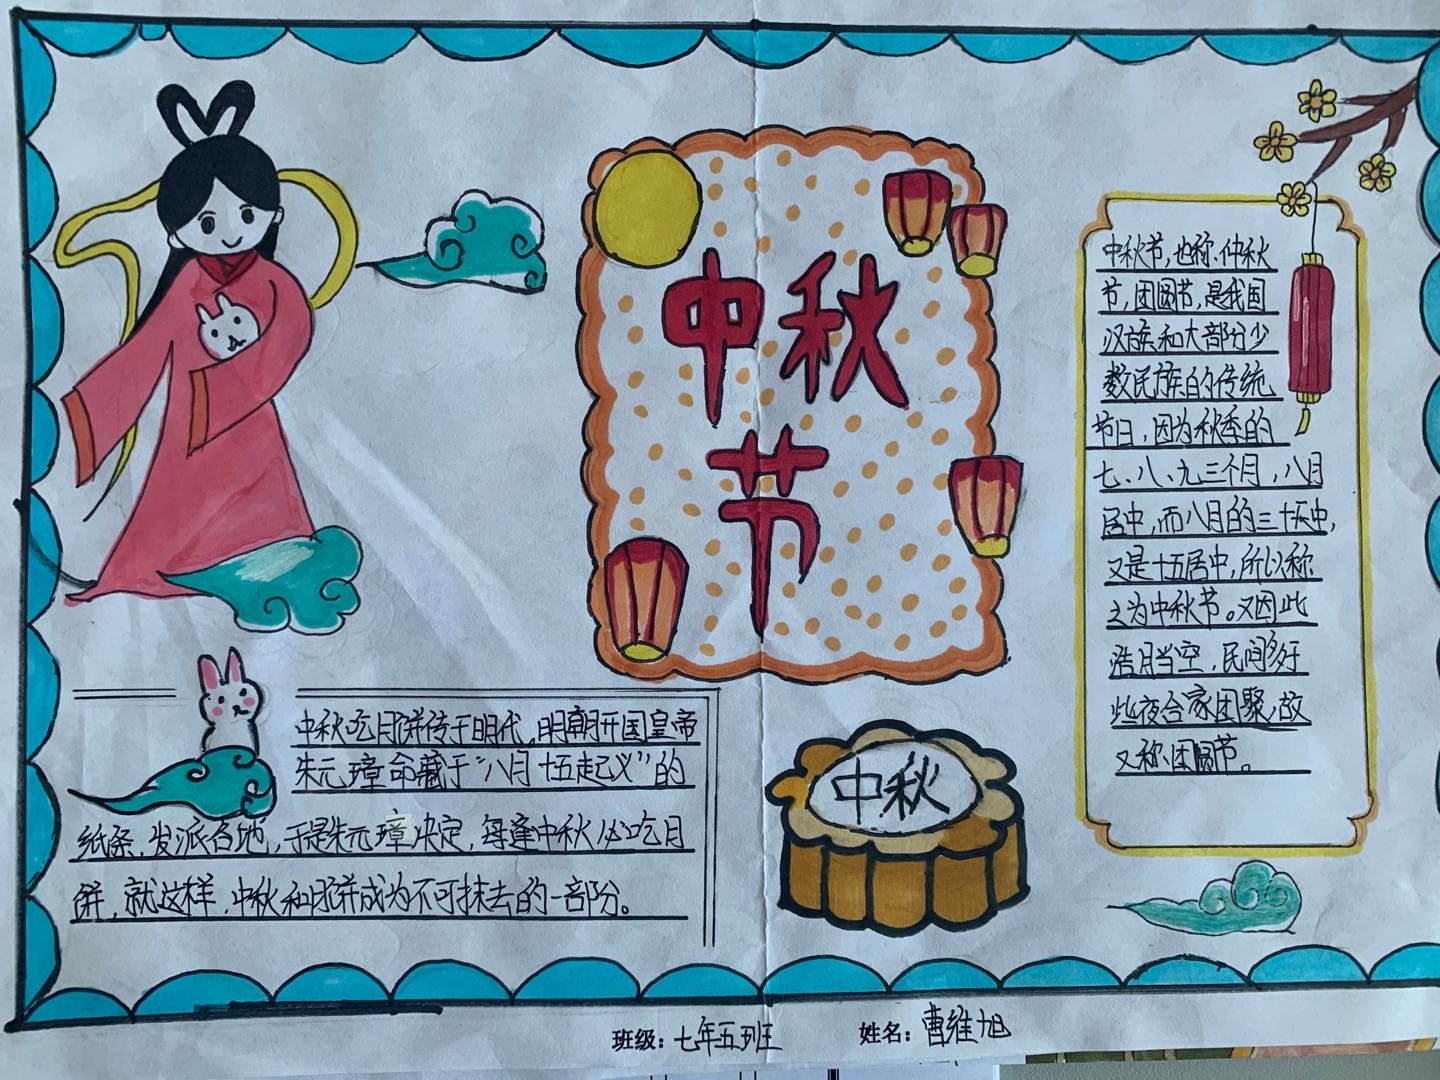 中秋
节
中秋节,也称、仲秋
节,团圆节,是我国
汉族和大部分少
数民族的传统
节日,因为秋季的
七、八、九三个月,八月
居中,而八月的三十天中,
又是十五居中,所以称
之为中秋节。又因此
浩月当空,民间多好
些夜合家团聚,故
又称、团圆节。
中秋吃月饼传于明代,明朝开国皇帝
朱元璋命藏于“八月十五起义”的
纸条,发派各地,于是朱元璋决定,每逢中秋必吃月
饼,就这样,中秋和月饼成为不可抹去的一部分。
中秋
班级:七年五班 姓名:曹维旭